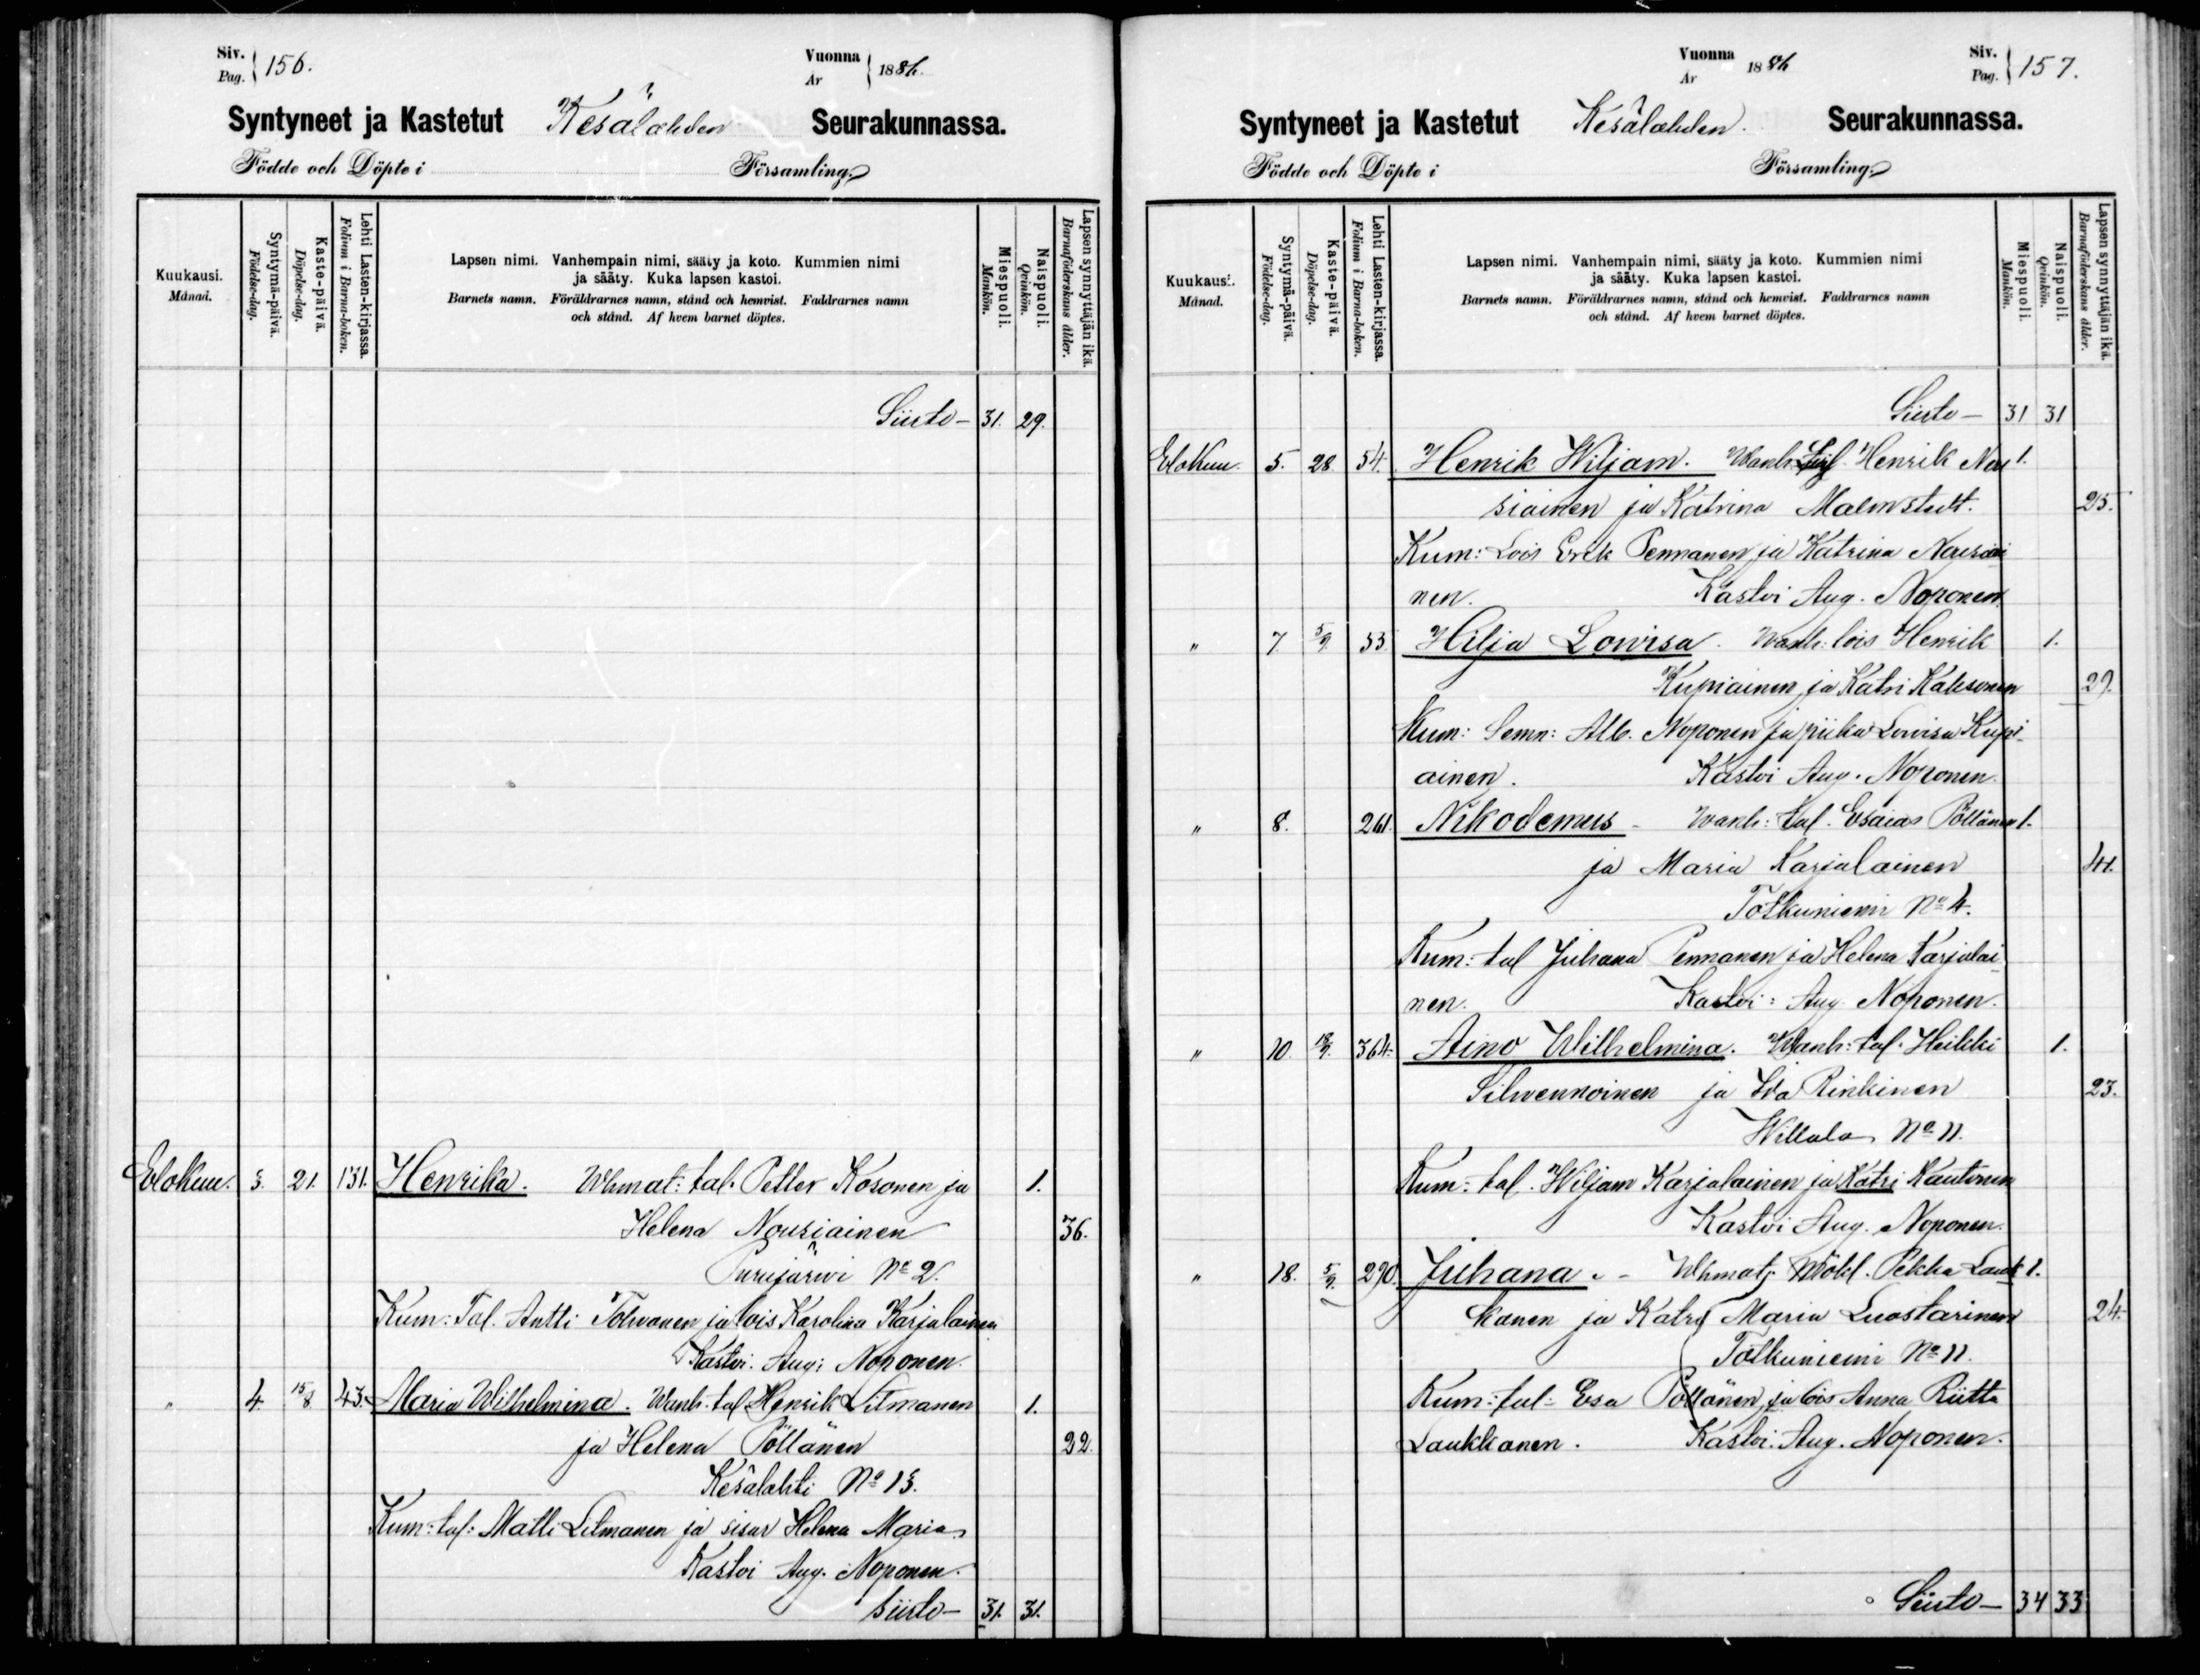 Siv.
Pag. 156.
Vuonna
Ar 1886.
Syntyneet ja Kastetut Kesälahden Seurakunnassa.
Födde och Döpte i Församling
Kuukausi.
Månad.
Syntymä-päivä.
Födelse-dag.
Kaste-päivä.
Döpelse-dag.
Lehti Lasten-kirjassa.
Folium i Barna-boken.
Lapsen nimi. Vanhempain nimi, sääty ja koto. Kummien nimi
ja sääty. Kuka lapsen kastoi.
Barnets namn. Föräldrarnes namn, stånd och hemvist. Faddrarnes namn
och stånd. Af hvem barnet döptes.
Miespuoli.
Mankön.
Naispuoli.
Qvinkön.
Lapsen synnyttäjän ikä.
Barnaföderskans ålder.
Siirto - 31. 29.
Elokuu. 3. 21. 131. Henrika. Whmat: tal. Petter Kosonen ja 1.
Helena Nousiainen 36.
Purujärwi No 2.
Kum: Tal. Antti Tolwanen ja lois Karolina Karjalainen
Kastoi: Aug: Noponen.
" 4. 15/8 43. Maria Wilhelmina. Wanh: tal. Henrik Litmanen 1.
ja Helena Pöllänen 22.
Kesälahti No 13.
Kum: tal: Matti Litmanen ja sisar Helena Maria
Kastoi Aug. Noponen.
Siirto - 31. 31.
Vuonna
Ar 1886
Siv.
Pag. 157.
Syntyneet ja Kastetut Kesälahden Seurakunnassa.
Födde och Döpte i Församling
Kuukausi.
Månad.
Syntymä-päivä.
Födelse-dag.
Kaste-päivä.
Döpelse-dag.
Lehti Lasten-kirjassa.
Folium i Barna-boken.
Lapsen nimi. Vanhempain nimi, sääty ja koto. Kummien nimi
ja sääty. Kuka lapsen kastoi.
Barnets namn. Föräldrarnes namn, stånd och hemvist. Faddrarnes namn
och stånd. Af hvem barnet döptes.
Miespuoli.
Mankön.
Naispuoli.
Qvinkön.
Lapsen synnyttäjän ikä.
Barnaföderskans ålder.
Siirto - 31 31
Elokuu. 5. 28. 54. Henrik Wiljam. Wanh: Henrik Nou 1.
siainen ja Katrina Malmstedt. 25.
Kum: Lois Erik Pennanen ja Katrina Nousiai
nen. Kastoi Aug. Noponen
" 7. 5/9. 53. Hilja Lowisa. Wanh: lois Henrik 1.
Kupiainen ja Katri Kaksonen 29.
Kum: Semn: Alb. Noponen ja piika Lowisa Kupi-
ainen. Kastoi Aug. Noponen.
" 8. 261. Nikodemus - Wanh: tal. Esaias Pöllänen 1.
ja Maria Karjalainen 41.
Totkuniemi No 4.
Kum: tal Juhana Pennanen ja Helena Karjalai
nen. Kastoi: Aug. Noponen.
" 10. 18/9. 364. Aino Wilhelmina. Wanh: tal. Heikki 1.
Silwennoinen ja Ida Rinkinen 23.
Willala No 11.
Kum: tal. Wiljam Karjalainen ja Katri Kautonen
Kastoi Aug. Noponen.
" 18. 5/9. 290. Juhana. - Whmat: Mökl. Pekka Lauk 1.
kanen ja Katri Maria Luostarinen 24.
Totkuniemi No 11.
Kum: tal: Esa Pöllänen ja lois Anna Riitta
Laukkanen. Kastoi. Aug. Noponen.
Siirto - 34 33